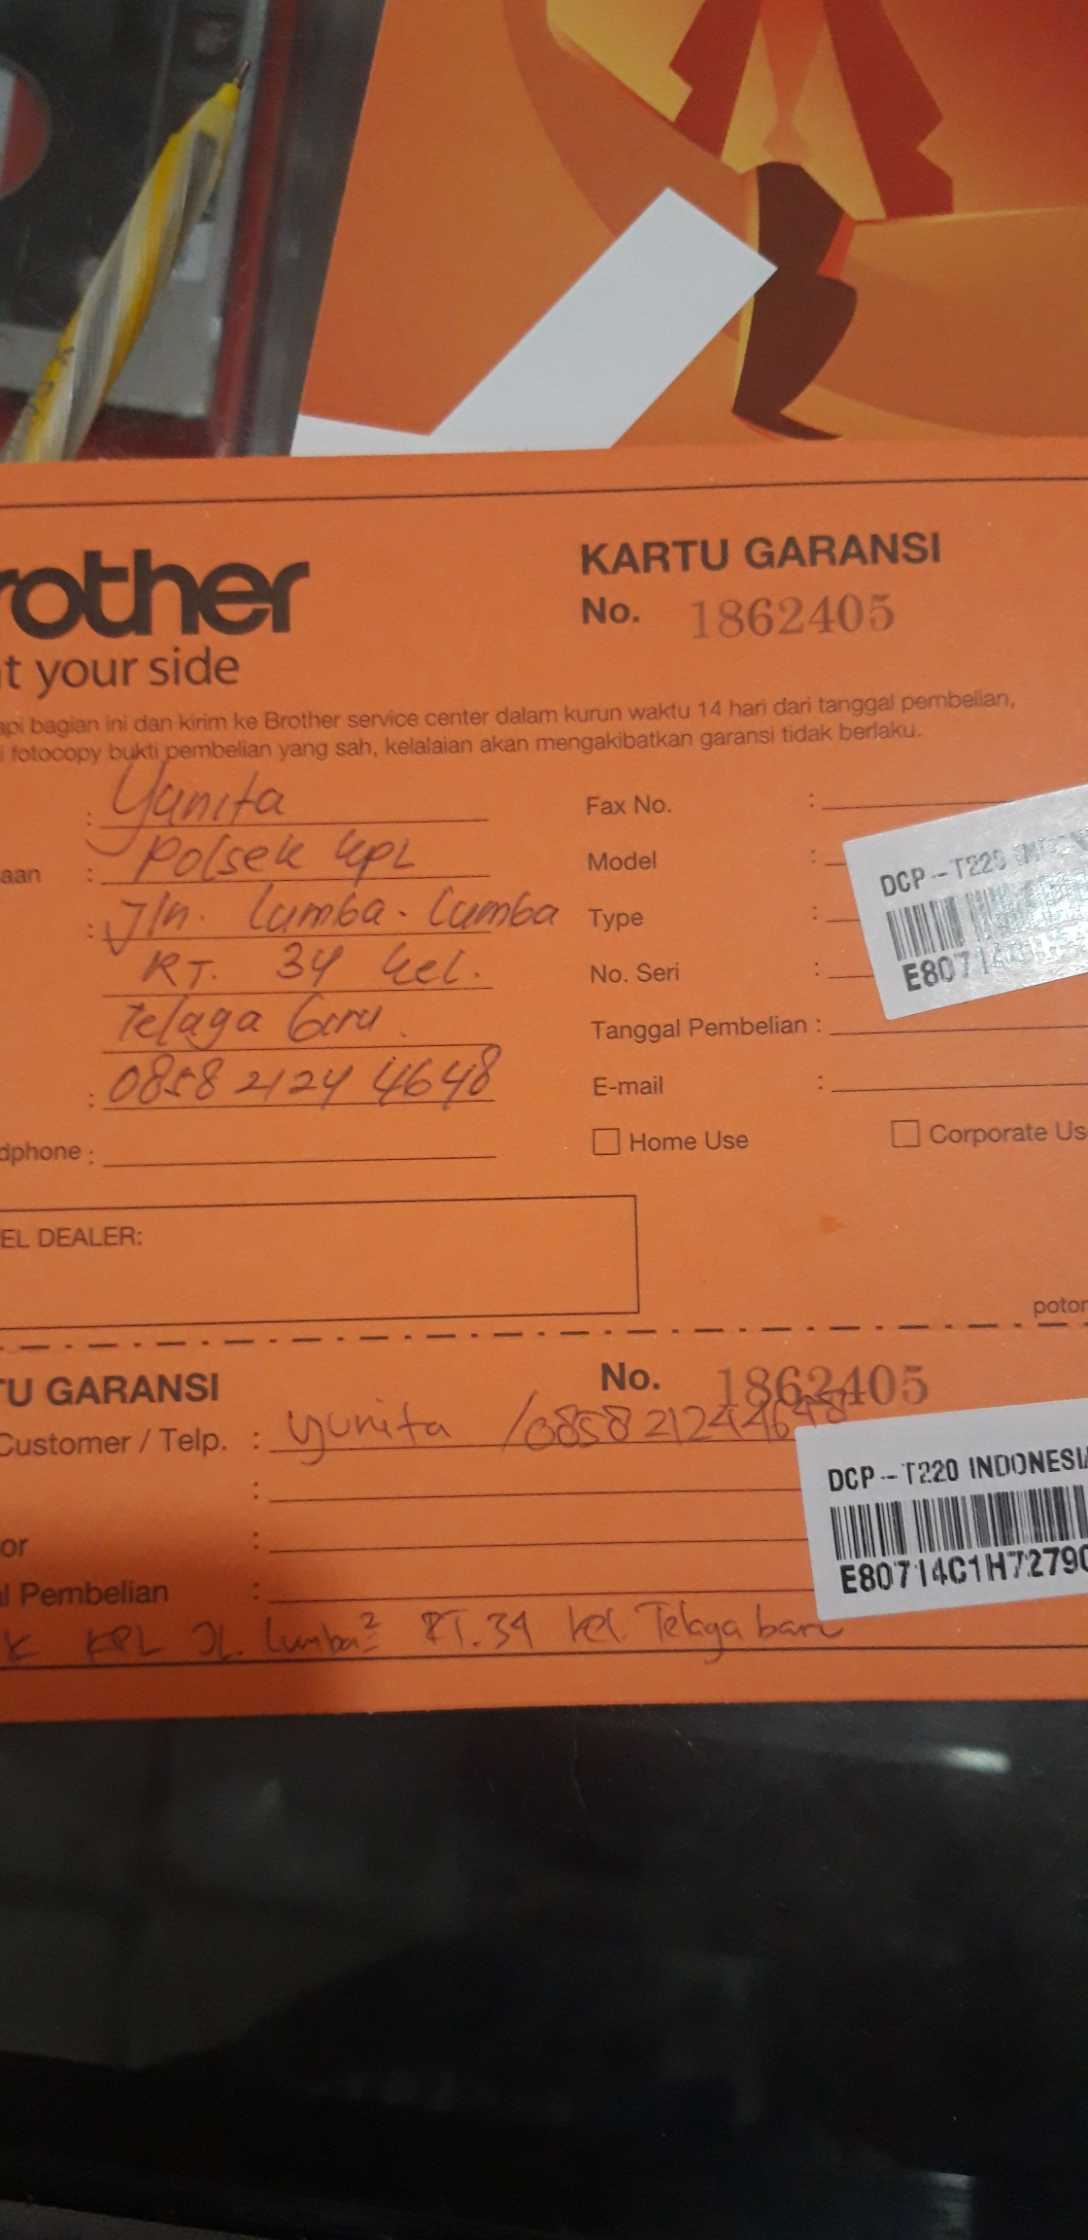 rother
t your side
KARTU GARANSI
No. 1862405
api bagian ini dan kirim ke Brother service center dalam kurun waktu 14 hari dari tanggal pembelian,
i fotocopy bukti pembelian yang sah, kelalaian akan mengakibatkan garansi tidak berlaku.
: Yunita
aan : Polsek KPL
: Jln. Lumba-Lumba
RT. 34 kel.
Telaga baru.
: 0858 2124 4648
dphone :
Fax No. :
Model :
Type :
No. Seri :
Tanggal Pembelian :
E-mail :
Home Use
Corporate Us
DCP-T220
E80714
EL DEALER:
poton
TU GARANSI
No. 1862405
Customer / Telp. : yunita /085821244648
:
or :
l Pembelian :
K KPL JL. Lumba² RT.34 kel. Telaga baru
DCP-T220 INDONESIA
E80714C1H72790